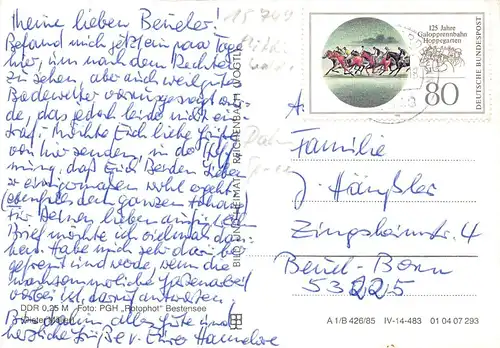 Meine lieben Beueler!
Befand mich jetzt ein paar Tage
hier, um nach dem Rechten
zu sehen, aber auch weil gutes
Badewetter vorausgesagt
de, das jedoch leider nicht
Möchte Euch liebe Grüße
von hier senden, in der
nung, daß Euch Beiden Lieben
es einigermaßen wohl ergeht
(ebenfalls der ganzen Familie)
Für Deinen lieben ausführlichen
Brief möchte ich vielmals dan-
ken. Habe mich sehr darüber
gefreut und werde, wenn die
vorbei ist, darauf antworten
Bis dahin alles Gute und
herzliche Grüße v. Eurer Hannelore
DDR 0,25 M Foto: PGH „Rotophot" Bestensee
BILD UND HEIMAT REICHENBACH (VOGTL)
125 Jahre
Galopprennbahn
Hoppegarten
80
DEUTSCHE BUNDESPOST
A.
Familie
J. Hänßler
Zingsheimstr. 4
Beuel-Bonn
53225
A 1/B 426/85 IV-14-483 01 04 07 293